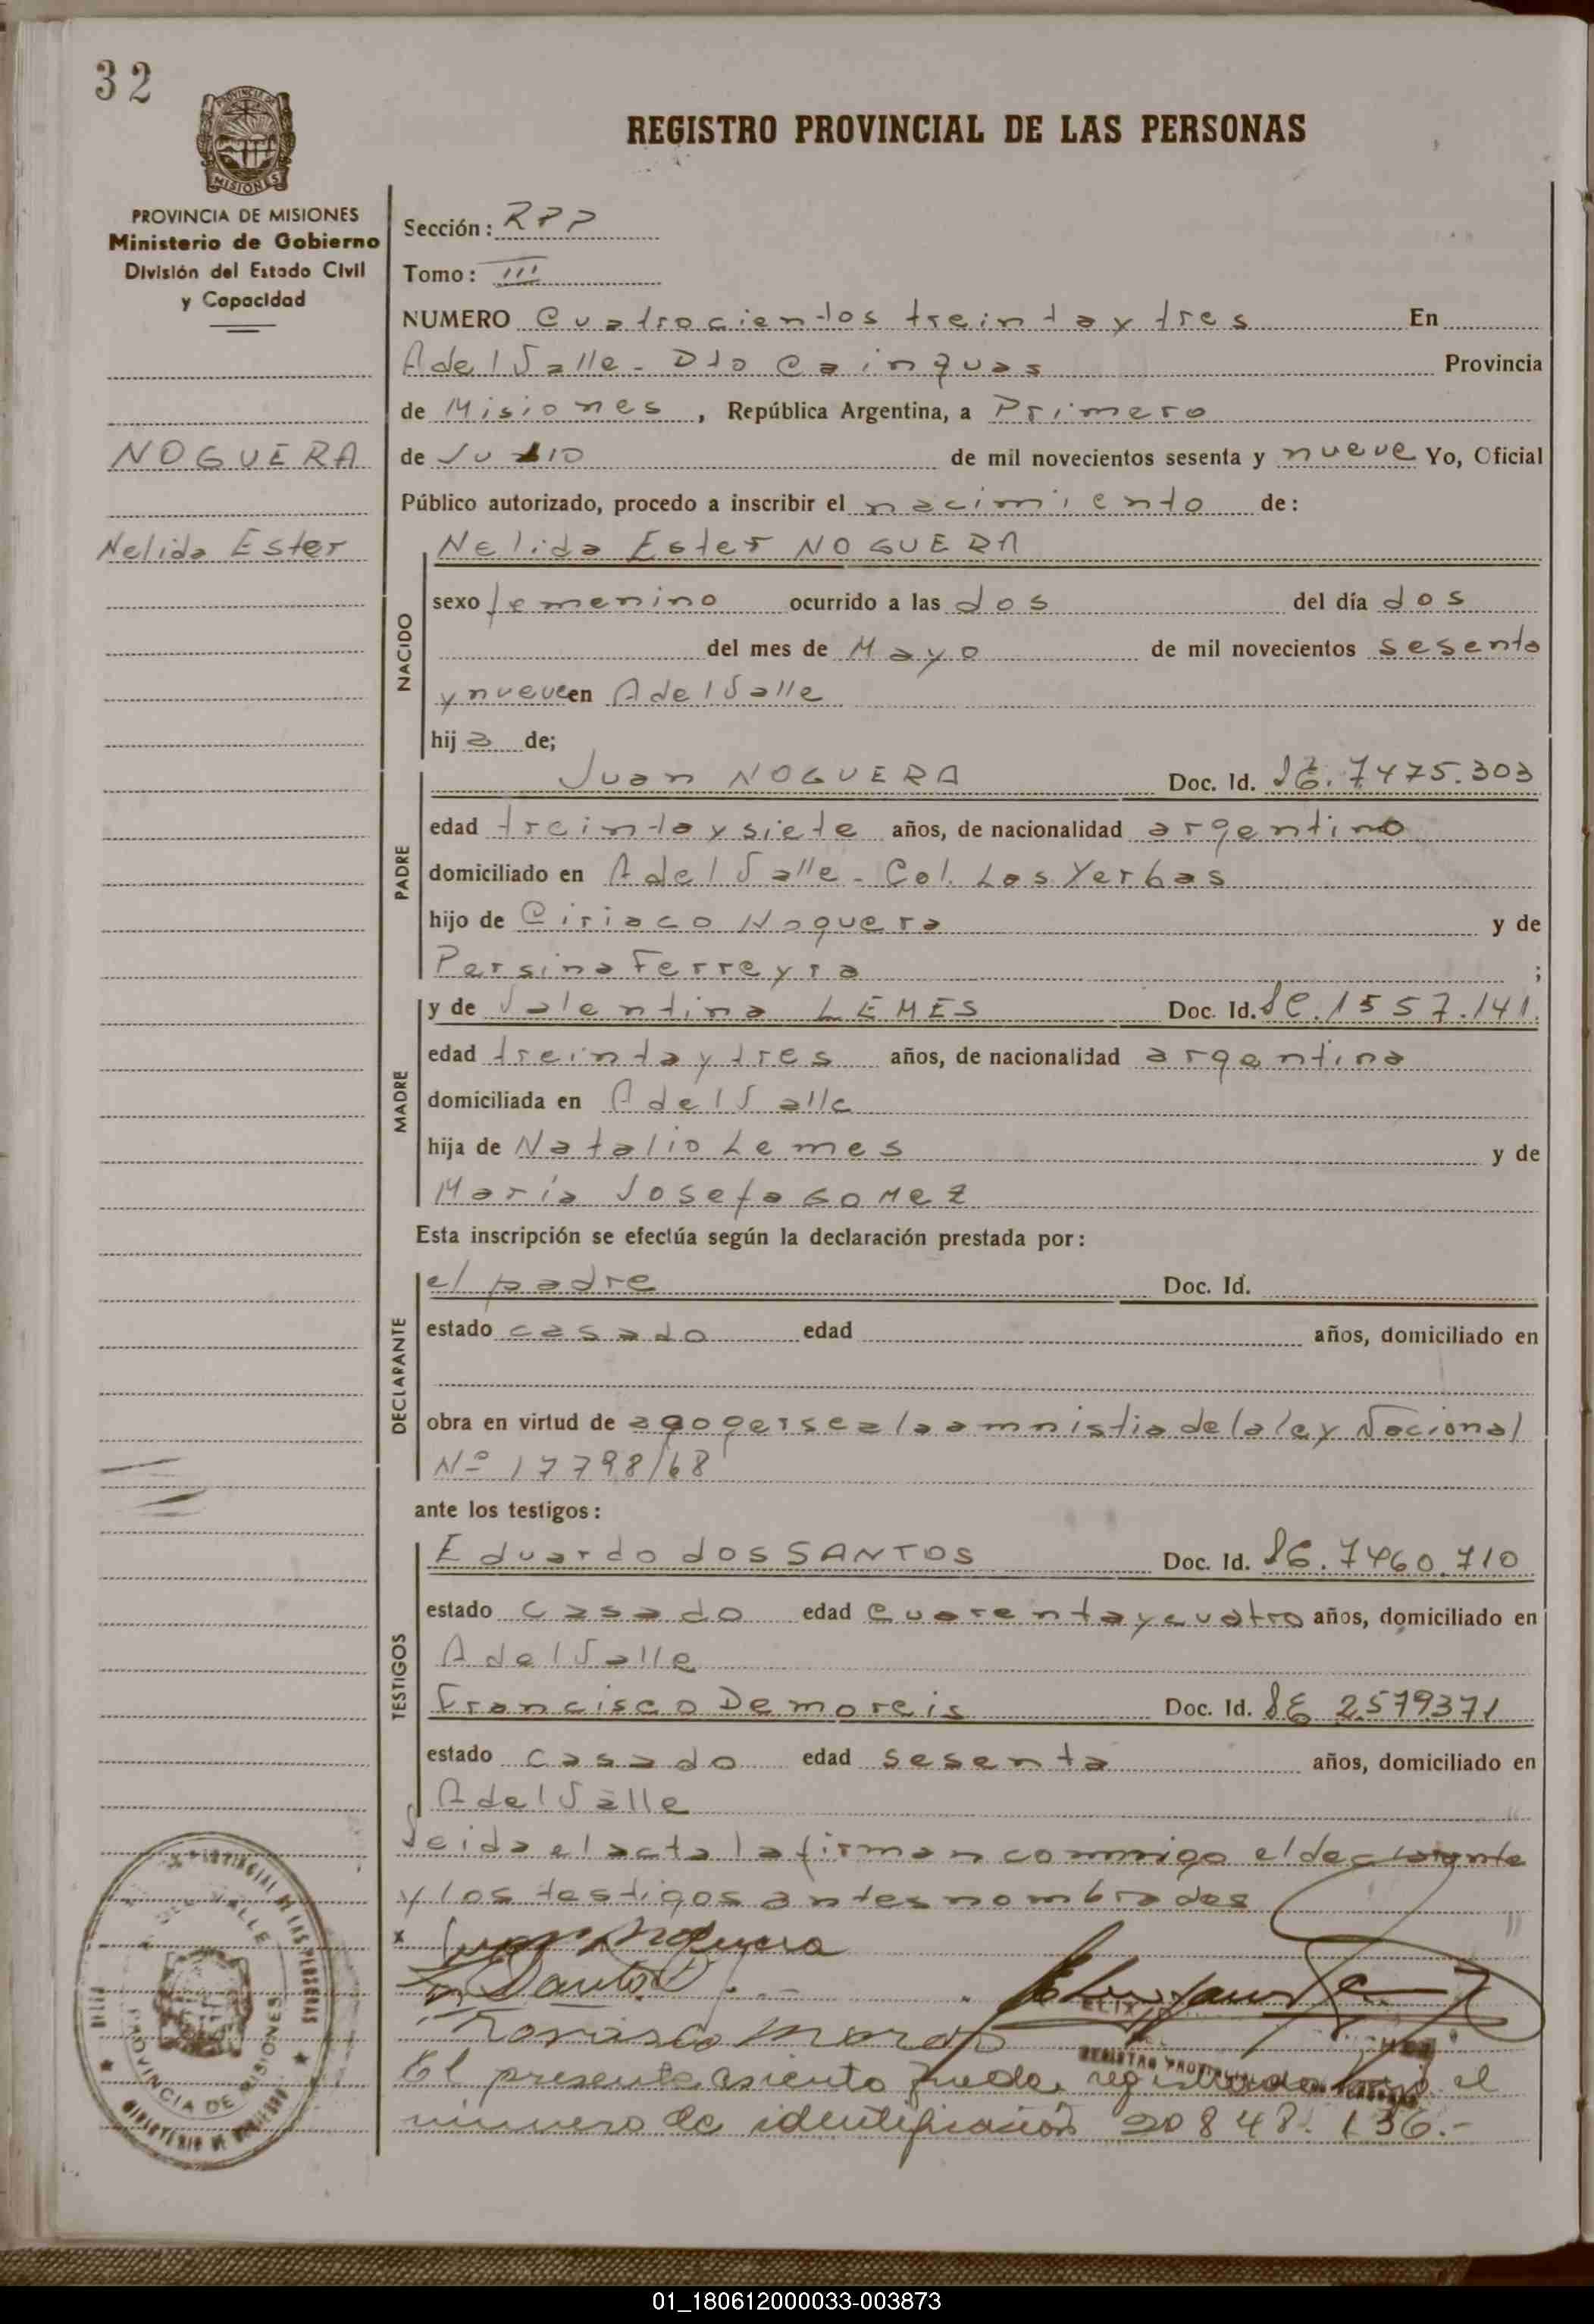 32
REGISTRO PROVINCIAL DE LAS PERSONAS
PROVINCIA DE MISIONES
Ministerio de Gobierno
División del Estado Civil
y Capacidad
NOGUERA
Nelida Ester
Sección: RPP
Tomo: III
NUMERO Cuatrocientos treinta y tres En
A del Valle - Dto Cainguas Provincia
de Misiones, República Argentina, a Primero
de de mil novecientos sesenta y nueve Yo, Oficial
Público autorizado, procedo a inscribir el nacimiento de:
NACIDO
Nelida Ester NOGUERA
sexo femenino ocurrido a las dos del día dos
del mes de Mayo de mil novecientos sesenta
y nueve en A del Valle
hija de;
PADRE
Juan NOGUERA Doc. Id. 7475.303
edad treinta y siete años, de nacionalidad argentino
domiciliado en A del Valle - Col. Las Yerbas
hijo de Ciriaco Noguera y de
Persina Ferreyra ;
MADRE
y de Valentina LEMES Doc. Id. LC. 1557.141.
edad treinta y tres años, de nacionalidad argentina
domiciliada en A del Valle
hija de Natalio Lemes y de
María Josefa GOMEZ
Esta inscripción se efectúa según la declaración prestada por:
DECLARANTE
el padre Doc. Id.
estado casado edad años, domiciliado en
obra en virtud de acogerse a la amnistia de la ley Nacional
Nº 17798/68
ante los testigos:
TESTIGOS
Eduardo dos SANTOS Doc. Id. 7460.710
estado casado edad cuarenta y cuatro años, domiciliado en
A del Valle
Francisco Demoreis Doc. Id. LE 2579371
estado casado edad sesenta años, domiciliado en
A del Valle
Leida el acta la firman conmigo el declarante
y los testigos antes nombrados
x Juan Noguera
El presente asiento queda registrado bajo el
número de identificación 20848.136.-
A DEL VALLE
PROVINCIA DE MISIONES
01_180612000033-003873